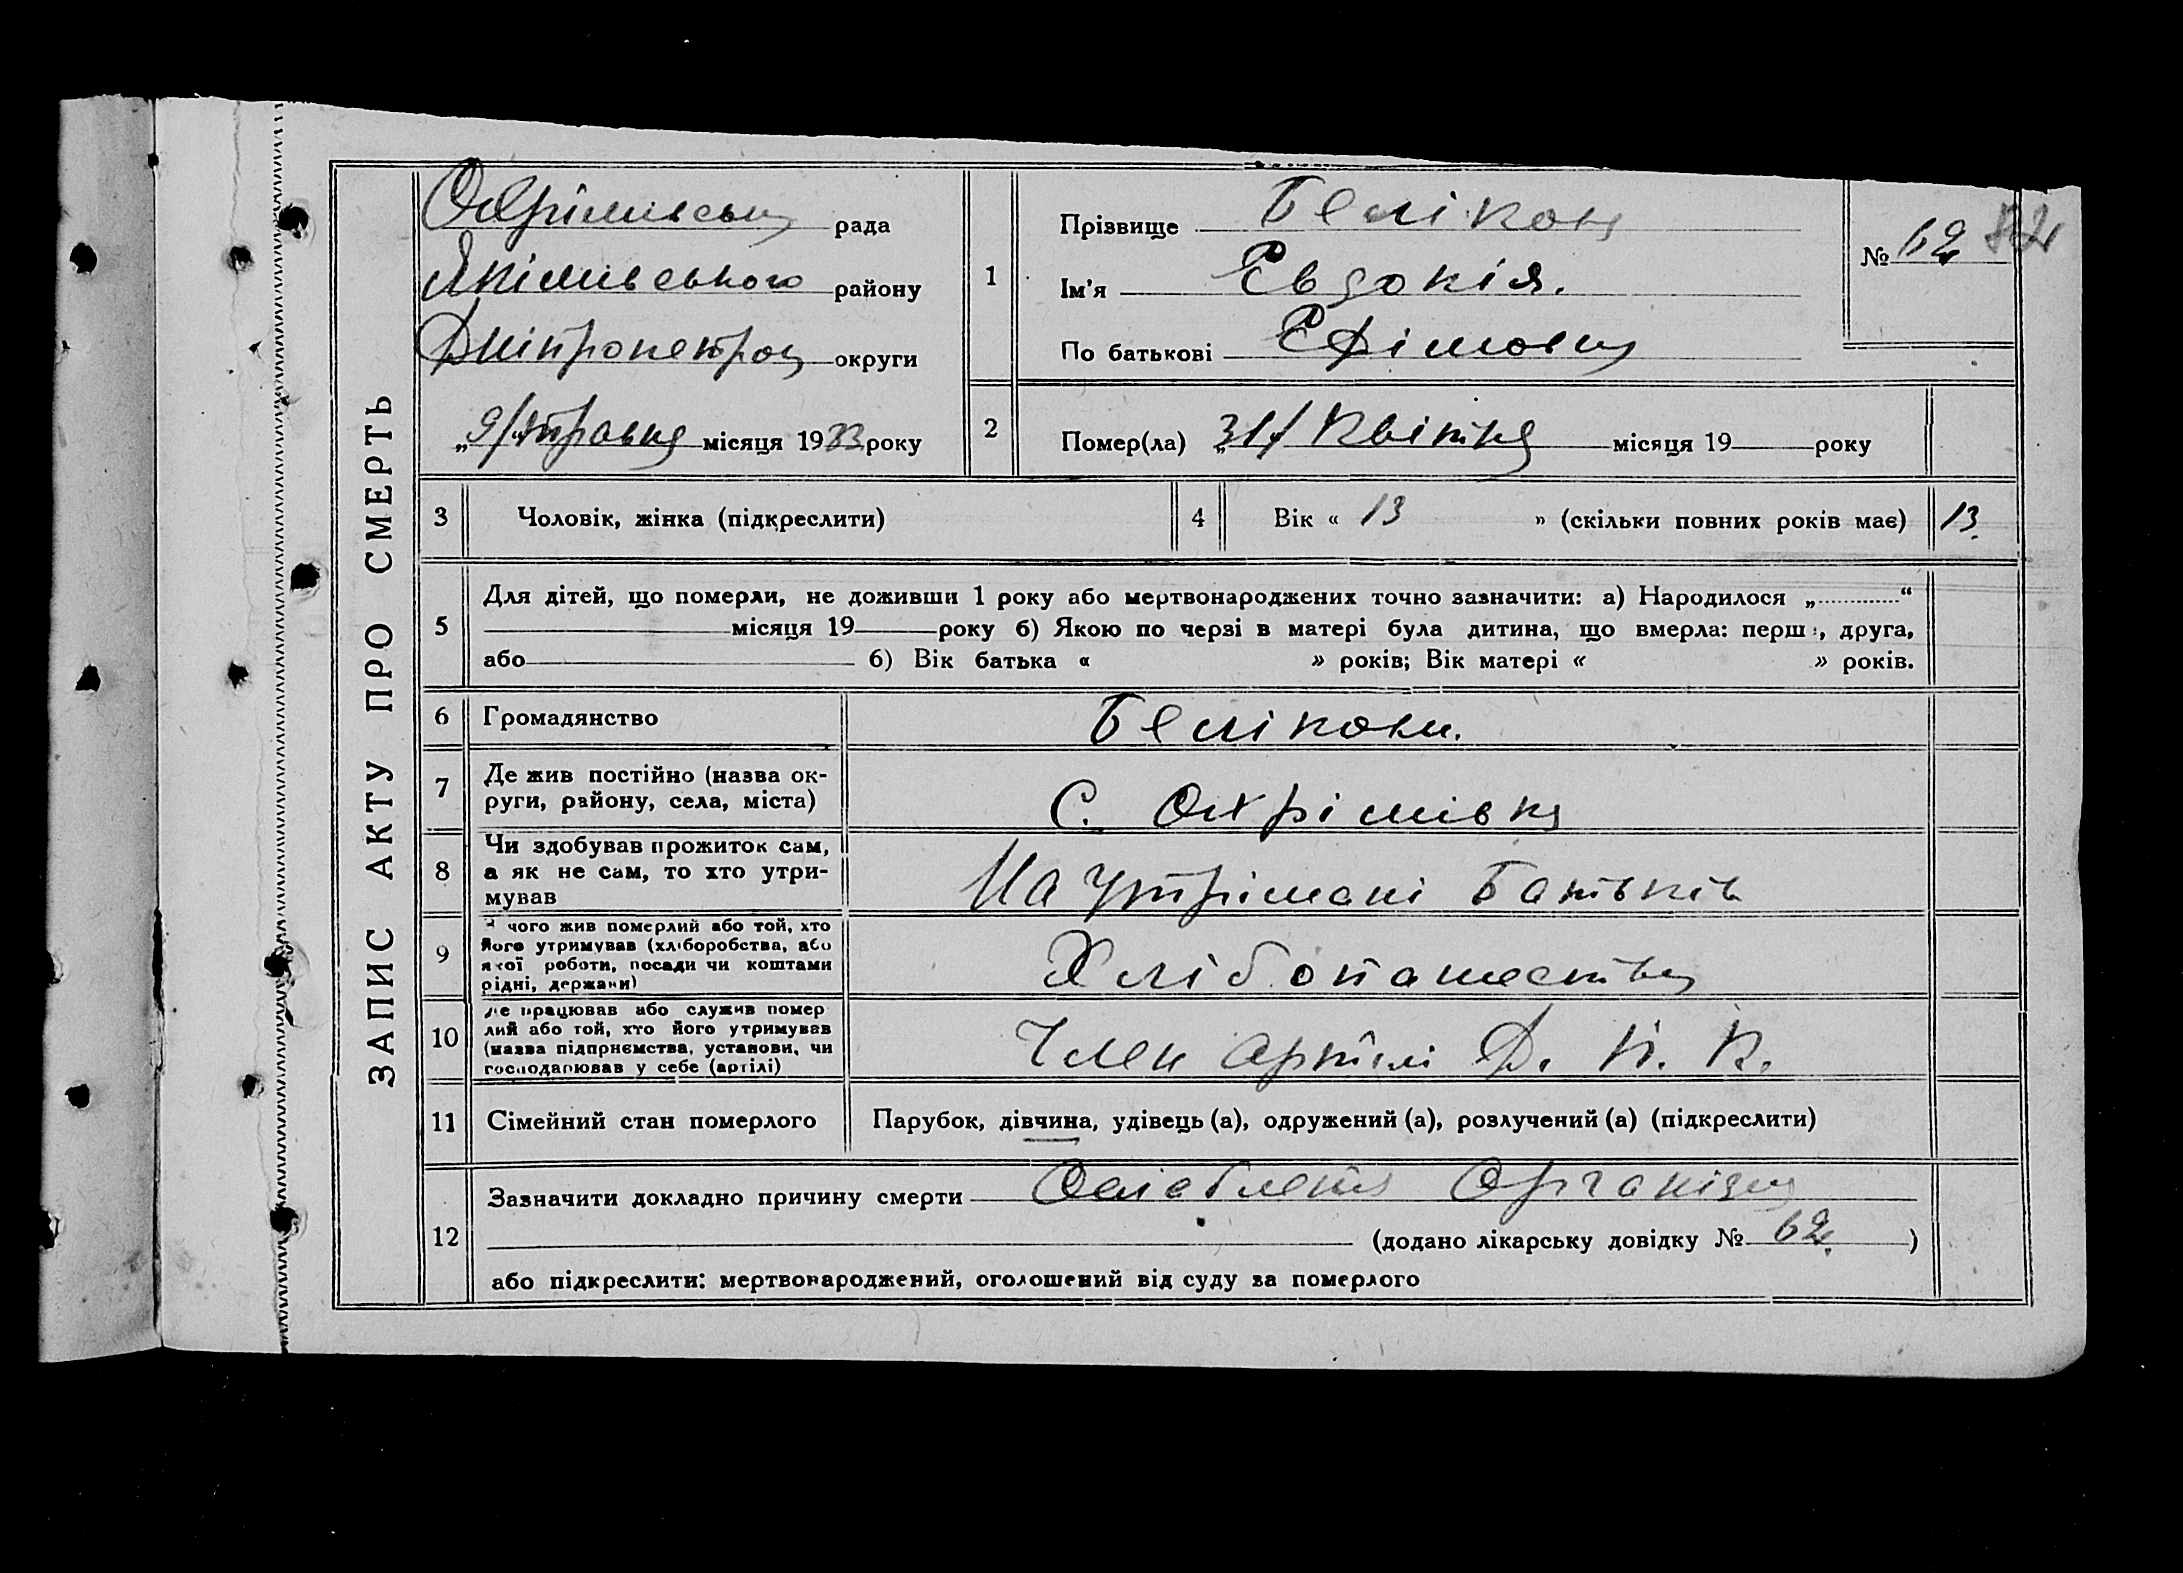 ЗАПИС АКТУ ПРО СМЕРТЬ
Охрімивська рада
Якімивського району
Дніпропетров округи
„9/травня місяця 1933 року
1
Прізвище Белікова
Ім'я Евдокія.
По батькові Ефімовна
№ 62
2
Помер(ла) „31/ Квітня місяця 19 року
3 Чоловік, жінка (підкреслити)
4 Вік « 13 » (скільки повних років має) 13
5
Для дітей, що померли, не доживши 1 року або мертвонароджених точно зазначити: а) Народилося „ “
місяця 19 року б) Якою по черзі в матері була дитина, що вмерла: перш, друга,
або б) Вік батька « » років; Вік матері « » років.
6 Громадянство Белікови.
7 Де жив постійно (назва ок-
руги, району, села, міста)
С. Охрімивка
8 Чи здобував прожиток сам,
а як не сам, то хто утри-
мував
На утрімані Батьків
9 чого жив померлий або той, хто
його утримував (хліборобства, або
якої роботи, посади чи коштами
рідні, держави)
Хлібопашество
10 Де працював або служив помер
лий або той, хто його утримував
(назва підприємства, установи, чи
господарював у себе (артілі)
Член артілі Д. Н. К.
11 Сімейний стан померлого Парубок, дівчина, удівець (а), одружений (а), розлучений (а) (підкреслити)
12
Зазначити докладно причину смерти Організма
(додано лікарську довідку № 62. )
або підкреслити: мертвонароджений, оголошений від суду за померлого